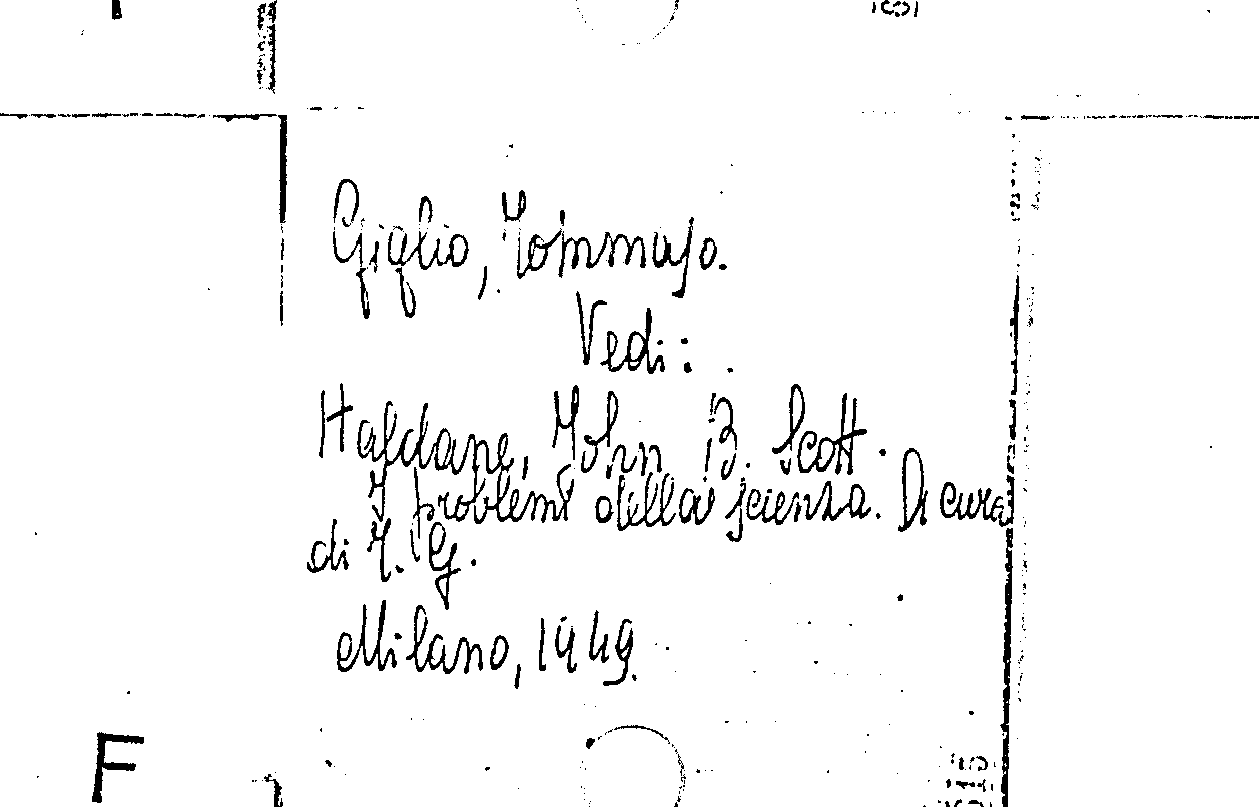 Giglio, Tommaso.
Vedi:
Haldane, John B. Scott.
I problemi della scienza. A cura
di T. G.
Milano, 1949.
F